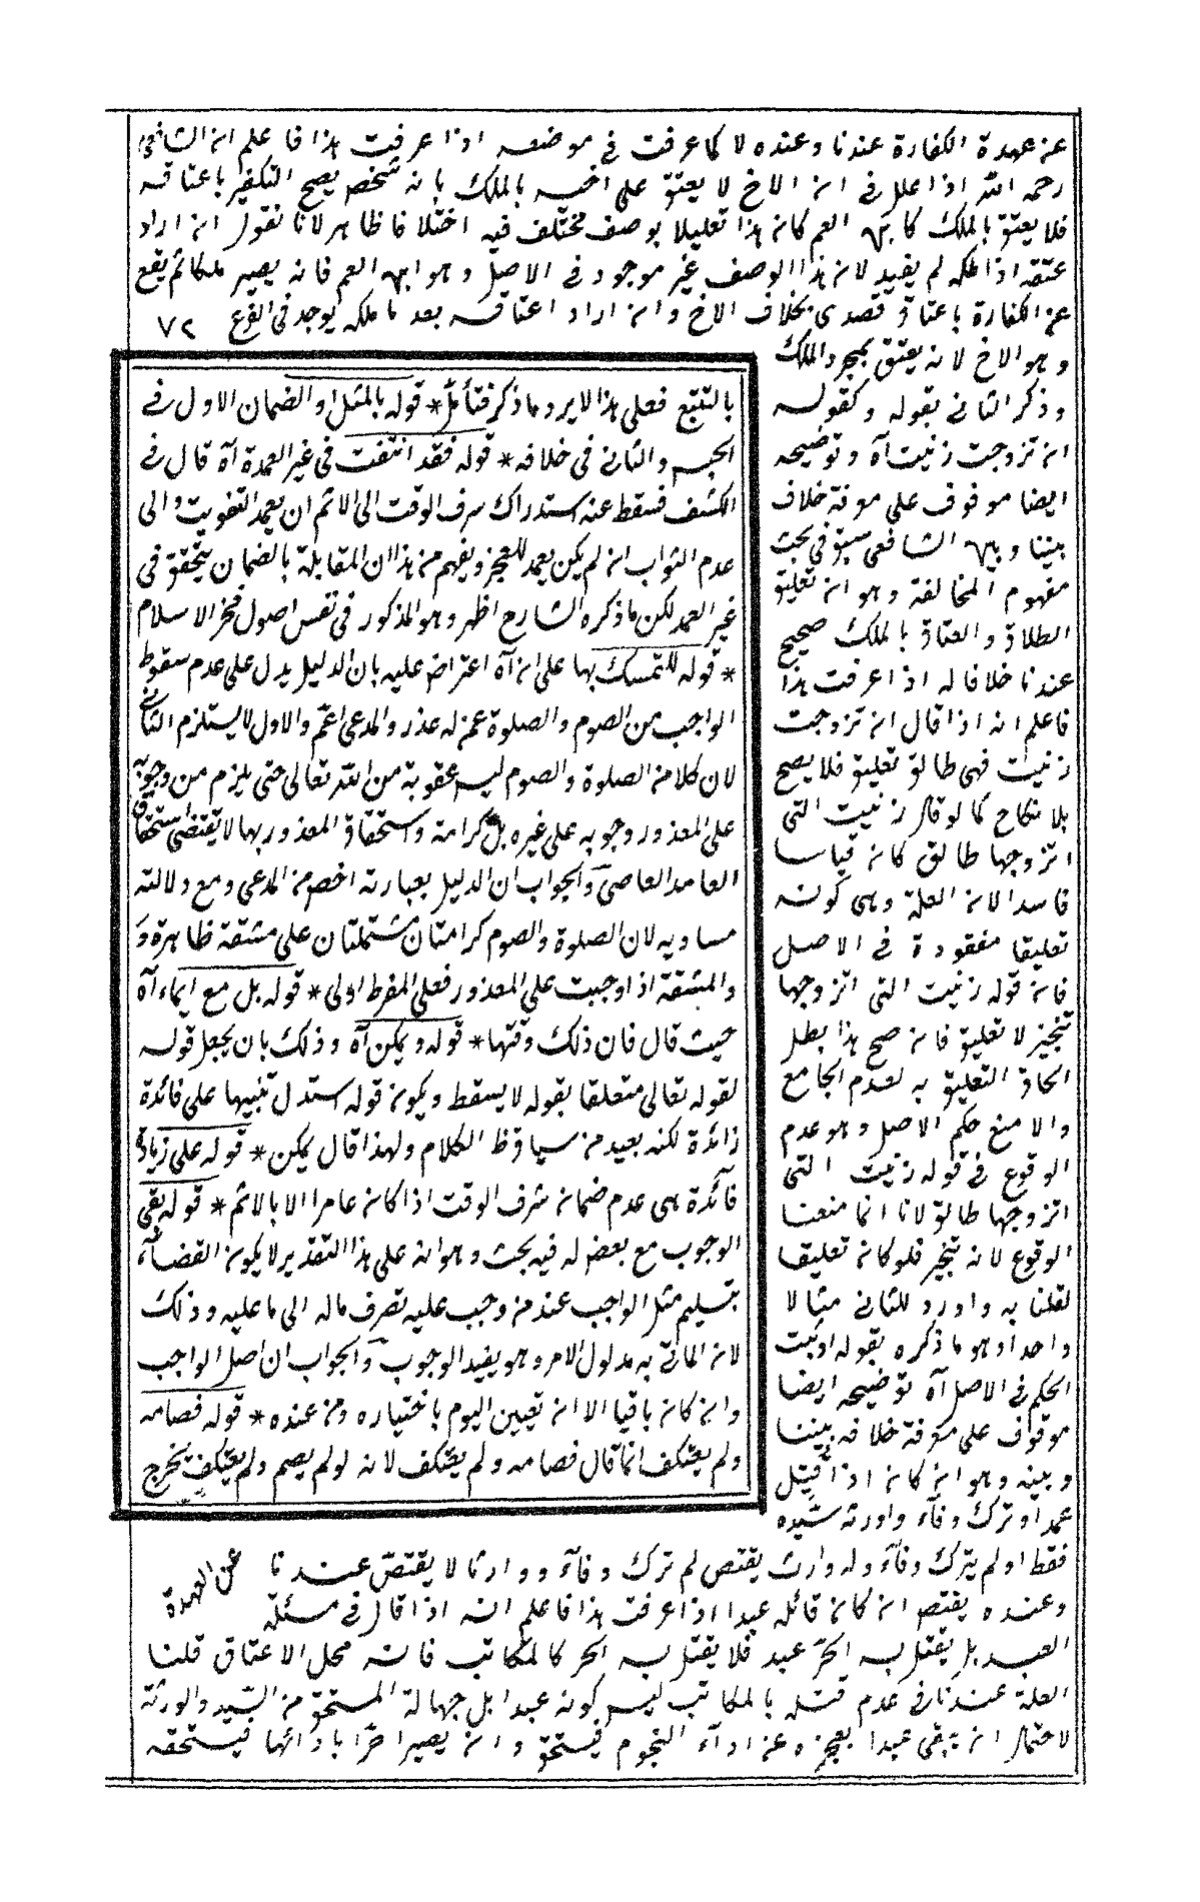 عن عهدة الكفارة عندنا وعنده لا كما عرفت في موضعه اذا عرفت هذا فاعلم ان الشافعي
رحمه الله اذا علل في ان الاخ لا يعتق على اخيه بالملك بانه شخص يصح التكفير باعتاقه
فلا يعتق بالملك كابن العم كان هذا تعليلا بوصف مختلف فيه اختلافا ظاهرا لانا نقول ان اراد
عتقه اذا ملكه لم يفيد لان هذا الوصف غير موجود في الاصل وهو ابن العم فانه يصير ملكا ثم يقع
عن الكفارة باعتاق قصدي بخلاف الاخ وان اراد اعتاقه بعد ما ملكه يوجد في الفرع ٧٢
وهو الاخ لانه يعتق بمجرد الملك
وذكر الثاني بقوله وكقوله
ان تزوجت زينب آه وتوضيحه
ايضا موقوف على معرفة خلاف
بيننا وبين الشافعي سبق في بحث
مفهوم المخالفة وهو ان تعليق
الطلاق والعتاق بالملك صحيح
عندنا خلافا له اذا عرفت هذا
فاعلم انه اذا قال ان تزوجت
زينب فهي طالق تعليق فلا يصح
بلا نكاح كما لو قال زينب التي
اتزوجها طالق كان قياسا
فاسدا لان العلة وهي كونه
تعليقا مفقودة في الاصل
فان قوله زينب التي اتزوجها
تنجيز لا تعليق فان صح هذا بطل
الحاق التعليق به لعدم الجامع
والا منع حكم الاصل وهو عدم
الوقوع في قوله زينب التي
اتزوجها طالق لانا انما منعنا
الوقوع لانه تنجيز فلو كان تعليقا
لقلنا به واورد للثاني مثالا
واحدا وهو ما ذكره بقوله او ثبت
الحكم في الاصل آه توضيحه ايضا
موقوف على معرفة خلافه بيننا
وبينه وهو ان كان اذا قتل
عمدا وترك وفاء وارثه سيده
فقط او لم يترك وفاء وله وارث يقتص لم ترك وفاء ووارثا لا يقتص عندنا
وعنده يقتص ان كان قاتله عبدا اذا عرفت هذا فاعلم انه اذا قال في مسئلة
العبد بل يقتل به الحر عبد فلا يقتل به الحر كالمكاتب فانه محل الاعتاق قلنا
العلة عندنا في عدم قتله بالمكاتب ليس كونه عبدا بل جهالة المستحق من السيد والورثة
لاحتمال ان يبقى عبدا بعجزه عن اداء النجوم فيستحق وان يصير حرا بادائها فيستحقه
بالتتبع فعلى هذا لايرد ما ذكر فتأمل * قوله بالمثل او الضمان الاول في
الجبر والثاني في خلافه * قوله فقد انتفت في غير العمدة آه قال في
الكشف فسقط عنه استدراك شرف الوقت الى الاثم ان يعمد التفويت والى
عدم الثواب ان لم يكن يعمد للعجز ويفهم من هذا ان المقابلة بالضمان يتحقق في
غير العمد لكن ما ذكره الشارح اظهر وهو المذكور في نفس اصول فخر الاسلام
* قوله للتمسك بها على ان آه اعتراض عليه بان الدليل يدل على عدم سقوط
الواجب من الصوم والصلوة عمن له عذر والمدعى اعم والاول لا يستلزم الثاني
لان كلا من الصلوة والصوم ليس عقوبة من الله تعالى حتى يلزم من وجوبه
على المعذور وجوبه على غيره بل كرامة واستحقاق المعذور بها لا يقتضي استحقاق
العامد العاصي والجواب ان الدليل بعبارته اخص من المدعى ومع دلالته
مساويه لان الصلوة والصوم كرامتان مشتملتان على مشقة ظاهرة و
والمشقة اذا وجبت على المعذور فعلى المفرط اولى * قوله بل مع ايماء آه
حيث قال فان ذلك وقتها * قوله ويمكن آه وذلك بان يجعل قوله
لقوله تعالى متعلقا بقوله لا يسقط ويكون قوله استدل تنبيها على فائدة
زائدة لكنه بعيد من سياق الكلام ولهذا قال يمكن * قوله على زيادة
فائدة هي عدم ضمان شرف الوقت اذا كان عامرا الا بالاثم * قوله بقى
الوجوب مع بعض له فيه بحث وهو انه على هذا التقدير لا يكون القضاء
بتسليم مثل الواجب عند من وجب عليه بصرف ماله الى ما عليه وذلك
لان الماتى به مدلول الامر وهو يفيد الوجوب والجواب ان اصل الواجب
وان كان باقيا الا ان تعيين اليوم باختياره ومن عنده * قوله فصامه
ولم يعتكف انما قال فصامه ولم يعتكف لانه لو لم يصم ولم يعتكف يخرج
عن العهدة